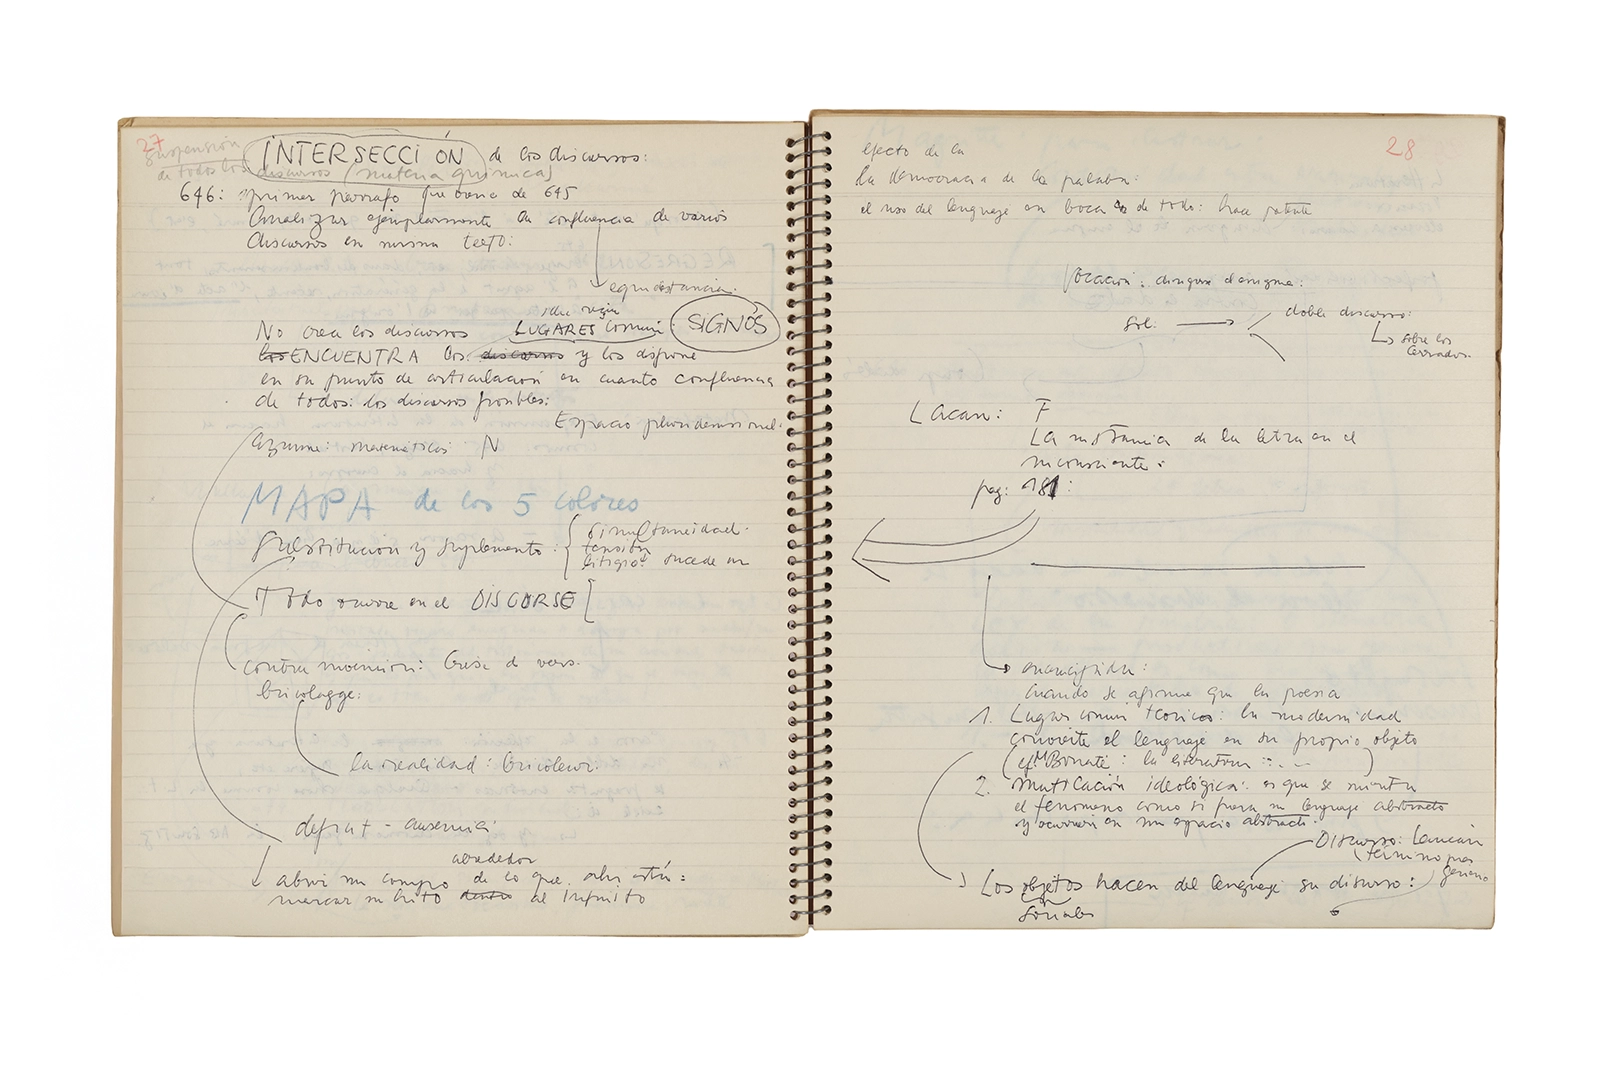 27
suspensión
de todos los discursos (materia química)
INTERSECCIÓN de los discursos:
646: primer párrafo que viene de 645
Analizar ejemplarmente la confluencia de varios
discursos en mismo texto:
equidistancia.
No crea los discursos LUGARES común: SIGNOS
los ENCUENTRA los discursos y los dispone
en su punto de articulación en cuanto confluencia
de todos: los discursos posibles:
Espacio pluridimensional.
matemáticas N
MAPA de los 5 colores
Substitución y suplemento: { simultaneidad.
tensión
litigio: sucede en
Todo ocurre en el DISCURSO
contra invención:
bricolagge:
la realidad: bricoleur.
deficit - ausencia
alrededor
abrir un campo de lo que ahí está:
marcar su hito dentro al infinito
28
efecto de la
La democracia de la palabra:
el uso del lenguaje en boca de todo: hace patente
Vocación: enigma:
Sol: doble discurso:
sobre los
cercados.
Lacan: F
La instancia de la letra en el
inconsciente:
pag: 181:
Cuando se afirma que la poesía
1. Lugar común teórico: la modernidad
convierte el lenguaje en su propio objeto
(cf M Bonati: la literatura: ... )
2. mutilación ideológica: es que se muestra
el fenómeno como si fuera un lenguaje abstracto
y ocurriera en un espacio abstracto.
Discurso: Lacan
término
género
Los objetos hacen del lenguaje su discurso:
sociales